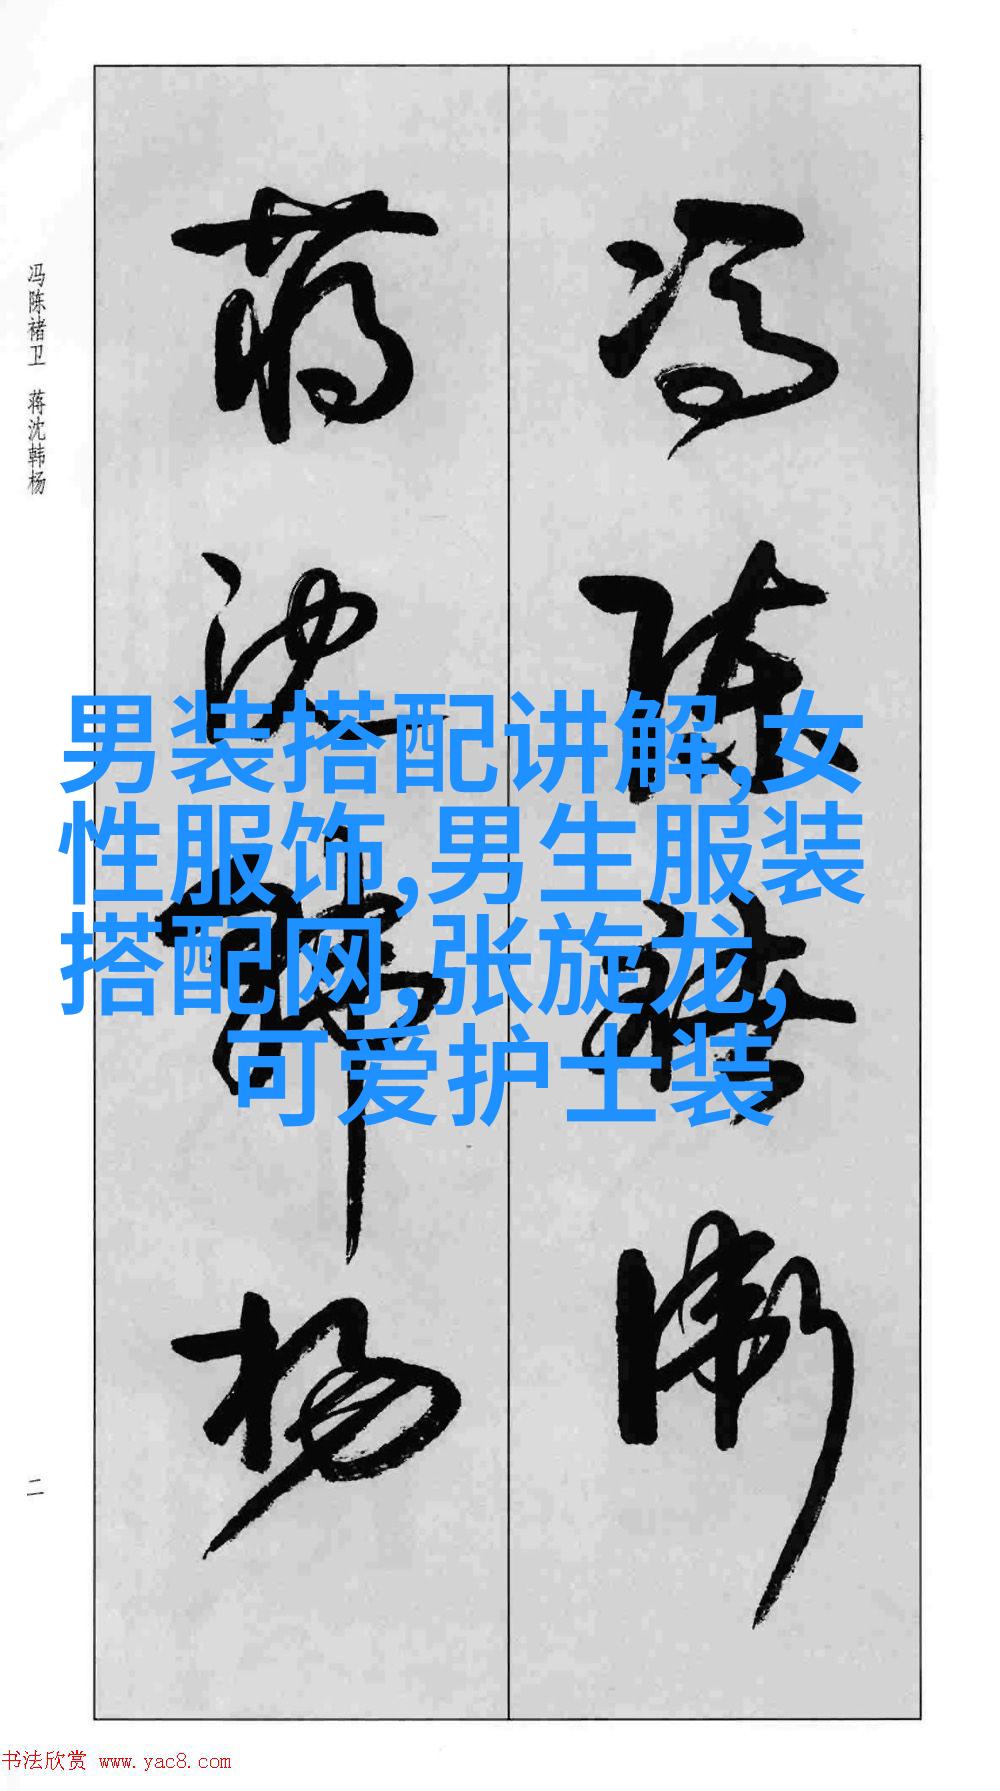 冯陈褚卫
蒋沈韩杨
冯陈褚卫 蒋沈韩杨
男装搭配讲解,女
性服饰,男生服装
搭配网,张旋龙,
可爱护士装
二
书法欣赏 www.yac8.com